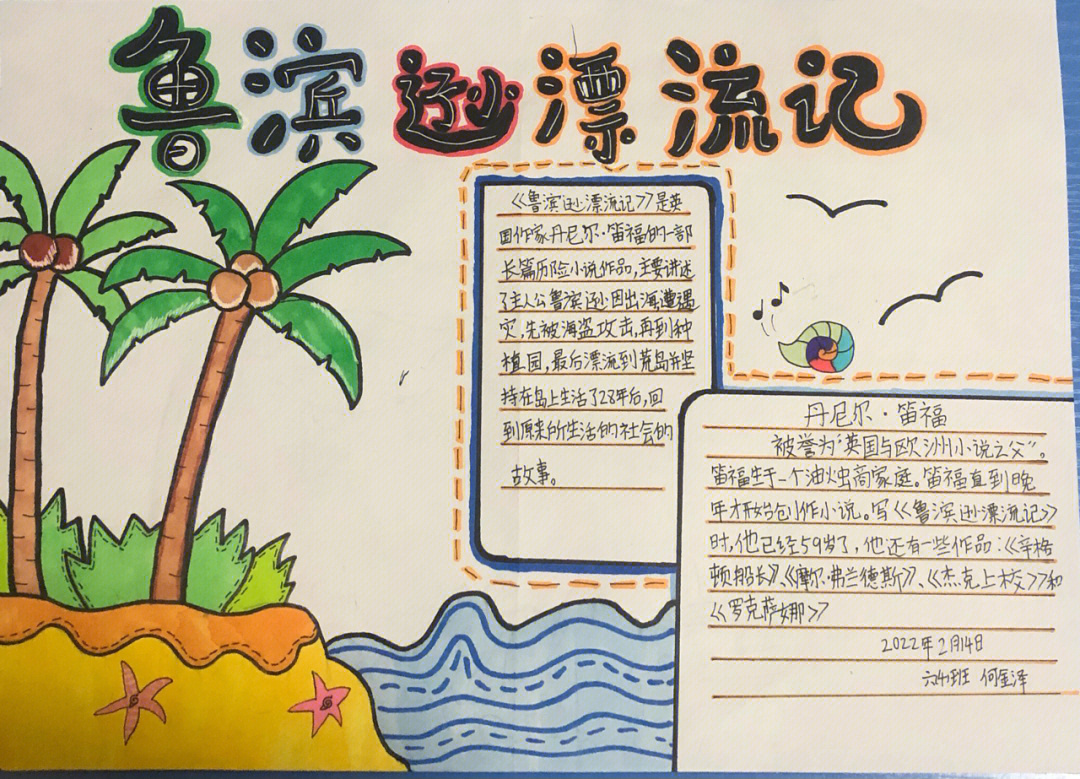 鲁滨逊漂流记
《鲁滨逊漂流记》是英
国作家丹尼尔·笛福的一部
长篇历险小说作品,主要讲述
了主人公鲁滨逊因出海遭遇
灾,先被海盗攻击,再到种
植园,最后漂流到荒岛并坚
持在岛上生活了28年后,回
到原来所生活的社会的
故事。
丹尼尔·笛福
被誉为“英国与欧洲小说之父”。
笛福生于一个油烛商家庭。笛福直到晚
年才开始创作小说。写《鲁滨逊漂流记》
时,他已经59岁了,他还有一些作品:《辛格
顿船长》、《摩尔·弗兰德斯》、《杰克上校》和
《罗克萨娜》
2022年2月14日
六班 何金泽